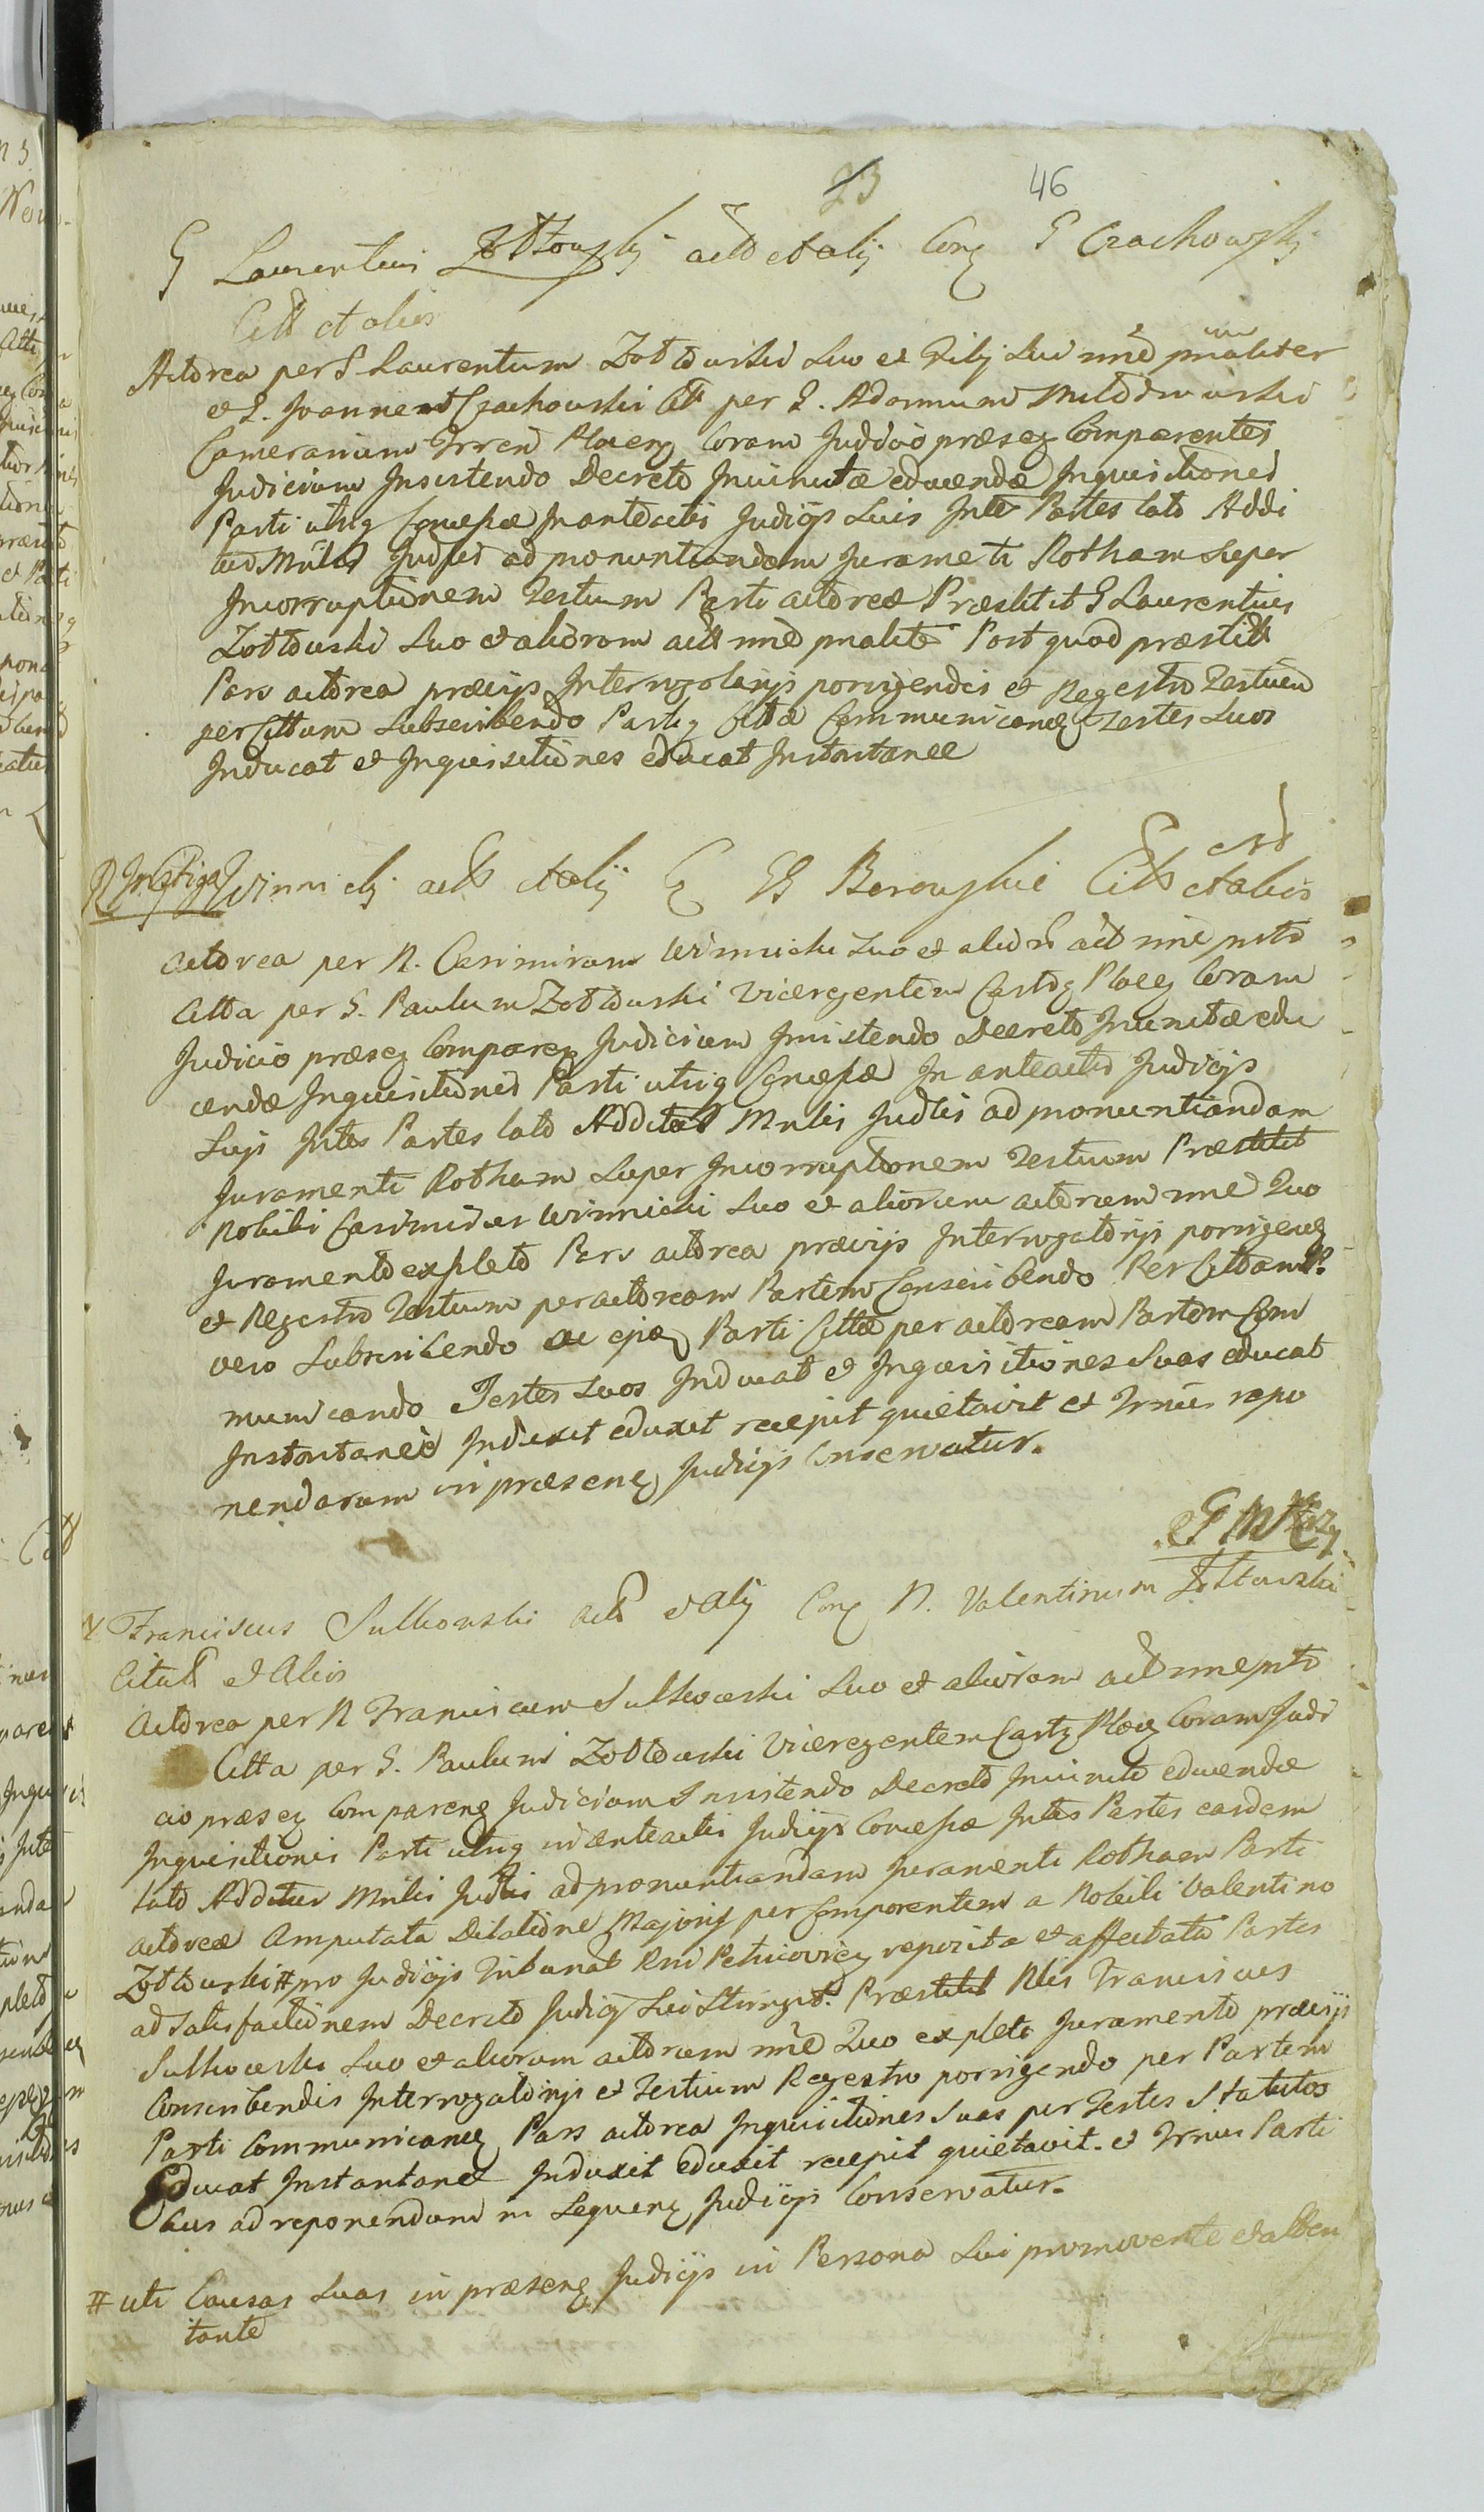 23 46
G Laurentius Zołtowskij act et alij Conq G Czachowskj
Citt et alios
Actorea per G Laurentium Zołtowski suo et filij sui nne pnaliter
et G. Joannem Czachowski Citt per G. Adamum
Camerarium Trren Plocenq Coram Juddicio præseq Comparentes
Judicium Insistendo Decreto Inunctæ educendæ Inquisitiones
Parti utriq Concessæ In anteactis Judicijs suis Inte Partes lato Addi
tus Mnlis Judlis ad pronuntiandam Jurameti Rotham super
Incorruptionem Testium Parti actoreæ Præstitit G Laurentius
Zołtowski suo et aliorom actt nne pnalite Post quod præstitt
Pars actorea prævijs Interrogatorijs porrigendis et Regestro Testium
per Cittum subscribendo Partiq Cittæ Communicanq Testes suos
Inducat et Inquisitiones educat Instantanee
R Instiga Winnickj actt et alij Cq GG Borowskie Citt et alios
actorea per N. Casimirum Winnicki suo et aliorũ act nne pnto
Citta per G. Paulum Zołtowski Viceregentem Castrq Plocq Coram
Judicio præseq Comparenq Judicium Insistendo Decreto Inunctæ edu
cendæ Inquisitionis Parti utriq Concessæ In anteactis Judicijs
suis Intes Partes lato Additus Mnlis Judlis ad pronuntiandam
Juramenti Rotham super Incorruptionem Testium Præstitit
Nobili Casimirus Winnicki suo et aliorum actorum nne Quo
Juramento expleto Pars actorea prævijs Interrogatorijs porrigenq
et Regestro Testium per actoream Partem Conscribendo Per Cittam Po
vero subscribendo ac ejus Parti Cittæ per actoream Partem Com
municando Testes suos Inducat et Inquisitiones suas educat
Instantanee Induxit eduxit recepit quietavit et Trnus repo
nendarum in præsenq Judicijs Conservatur.
Franciscus Sulkowski actt et alij Conq N. Valentinum Zołtowski
Citatt et Alios
Actorea per N Franciscum Sulkowski suo et aliorum act nne pnto
Citta per G. Paulum Zołtowski Viceregentem Castrq Plocq Coram Judi
cio præseq Comparenq Judicium Insistendo Decreto Inuncto educendæ
Inquisitionis Parti utriq in anteactis Judicijs Concessæ Intes Partes easdem
lato Additur Mnlis Judlis ad pronuntiandam Juramenti Rotham Parti
actoreæ Amputata Dilatione Majoriq per Comparentem a Nobili Valentino
Zołtowski # pro Judicijs Tribunal Rni Petricoviq reposita et affectata Partes
ad satisfactionem Decreto Judicij sui Stringit. Præstitit Nlis Franciscus
Sulkowski suo et aliorum actorum nne Quo expleto Juramento prævijs
Conscribendis Interrogatorijs et Testium Regestro porrigendo per Partem
Parti Communicanq Pars actorea Inquisitiones suas per Testes Statutos
Educat Instantanee Induxit eduxit recepit quietavit. et Trnus Parti
bus ad reponendam in sequenq Judicijs Conservatur.
# uti Causas suas in præsenq Judicijs in Persona sui promovente et atten
tante